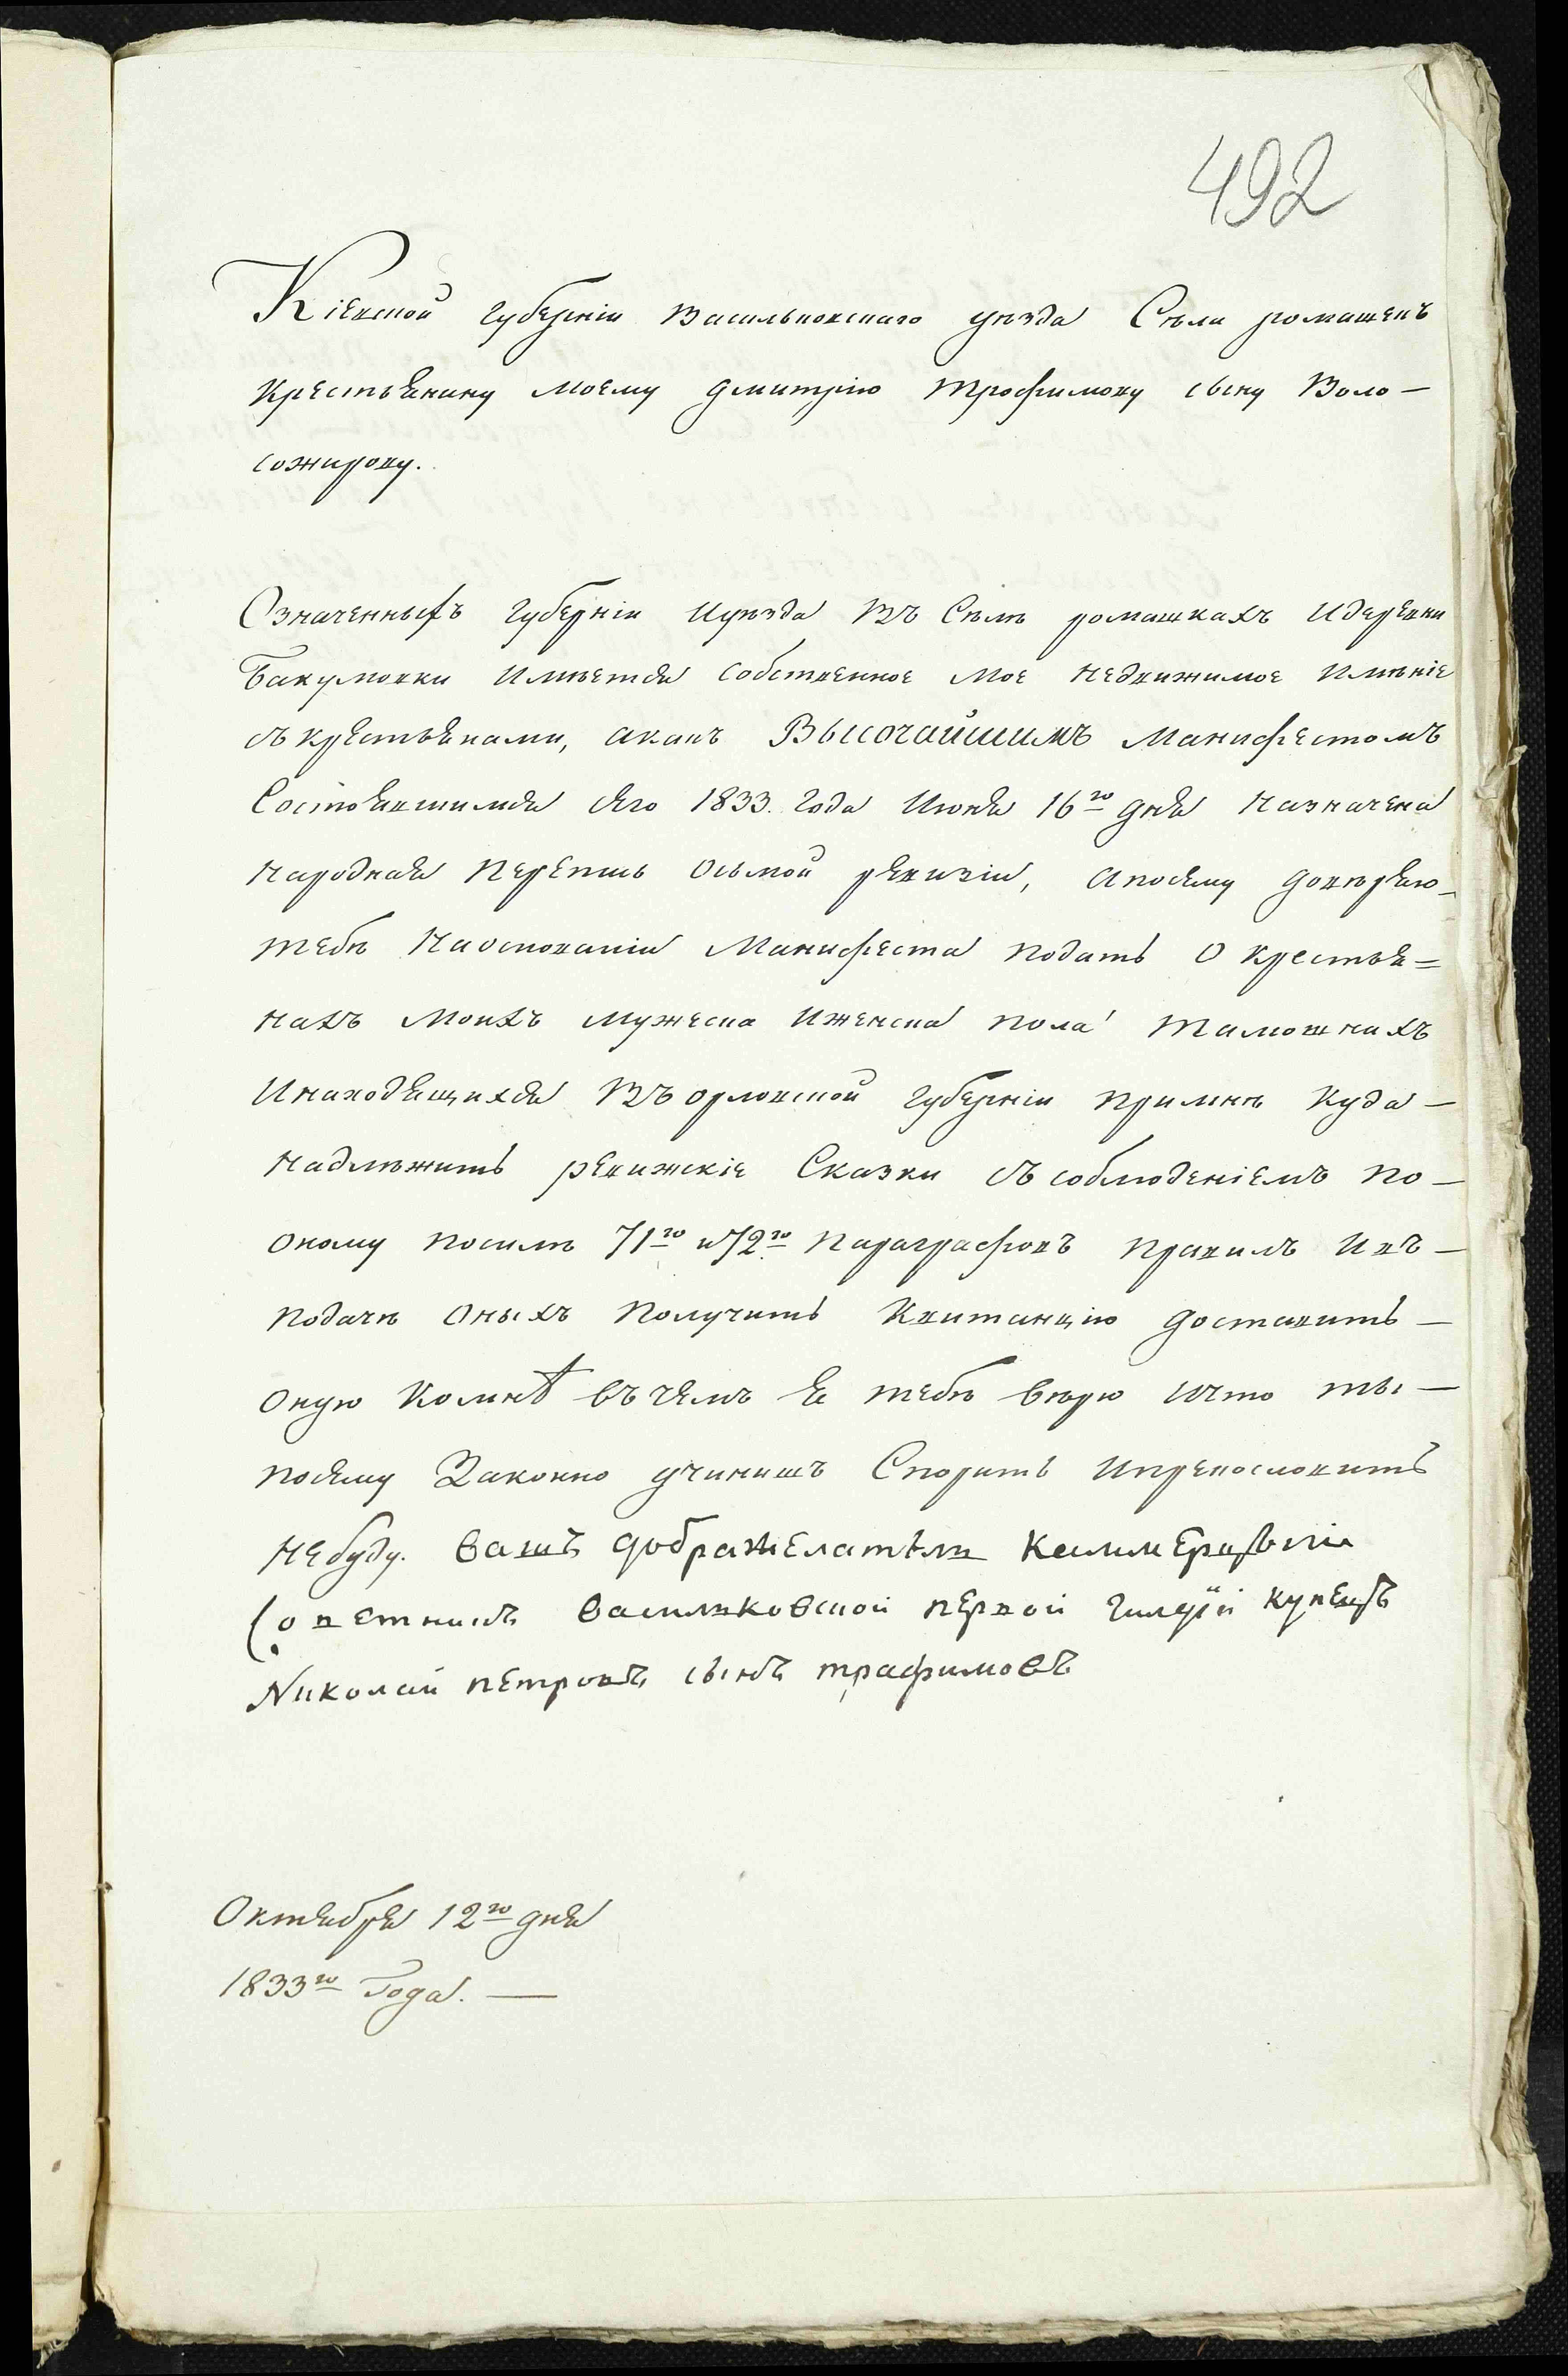 492
Кіевской губерніи Васильковскаго уезда Села ромашекъ
Крестьянину моему Дмитрію Трофимову сыну Воло-
сожирову.
Означенныхъ губерніи Иуезда Въ Селѣ ромашкахъ Идеревни
Бакумовки Имѣется собственное мое недвижимое Имѣніе
съ крестьянами, акакъ Высочайшимъ Манифестомъ
Состоявшимся сего 1833. Года Июня 16го дня Назначена
Народная Перепись осьмой ревизіи, Апосему довѣряю-
тебѣ Наоснованіи Манифеста подать О крестья=
нахъ моихъ мужеска Иженска пола тамошнихъ
Инаходящихся Въ орловской губерніи примнѣ куда-
надлѣжитъ ревижскіе Сказки съ соблюденіемъ по-
оному посилѣ 71го и 72го Параграфовъ правилъ Ивъ-
подачѣ Оныхъ Получить Квитанцію доставить-
оную Комнѣ въ чемъ Я тебѣ вѣрю ичто ты-
посему Законно учинишъ Споритъ Ипрекословить
небуду. вашъ дображелатель Каммерцыи
Советникъ василковской первой гилдіи купецъ
Николай петровъ сынъ трафимовъ
Октября 12го дня
1833го Года.-